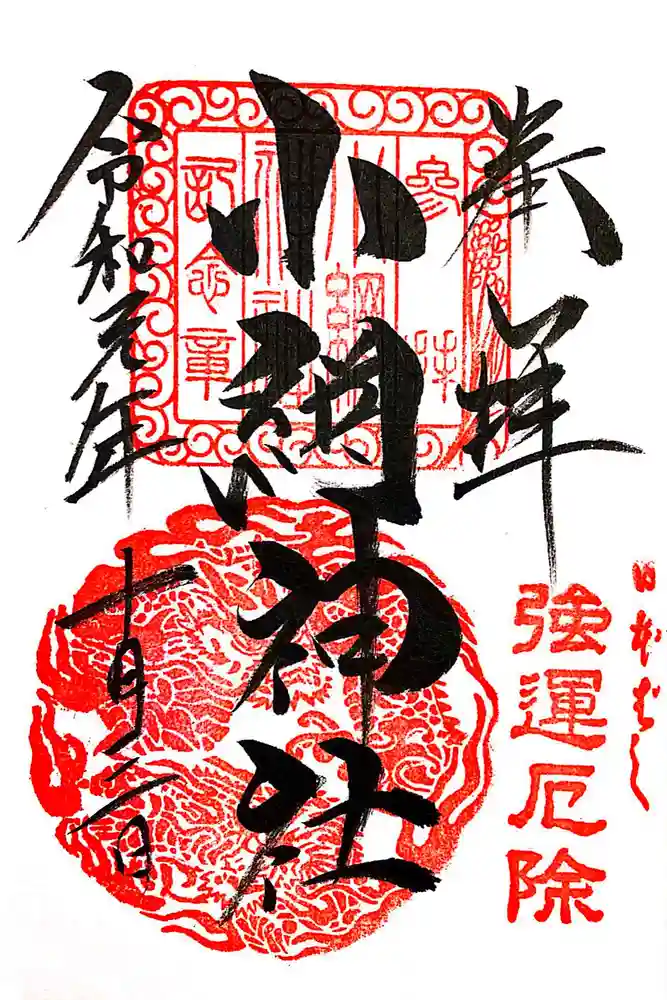 奉拝
日本ばし
強運厄除
参拝
小網
小網神社
記念章
令和元年
十月二日